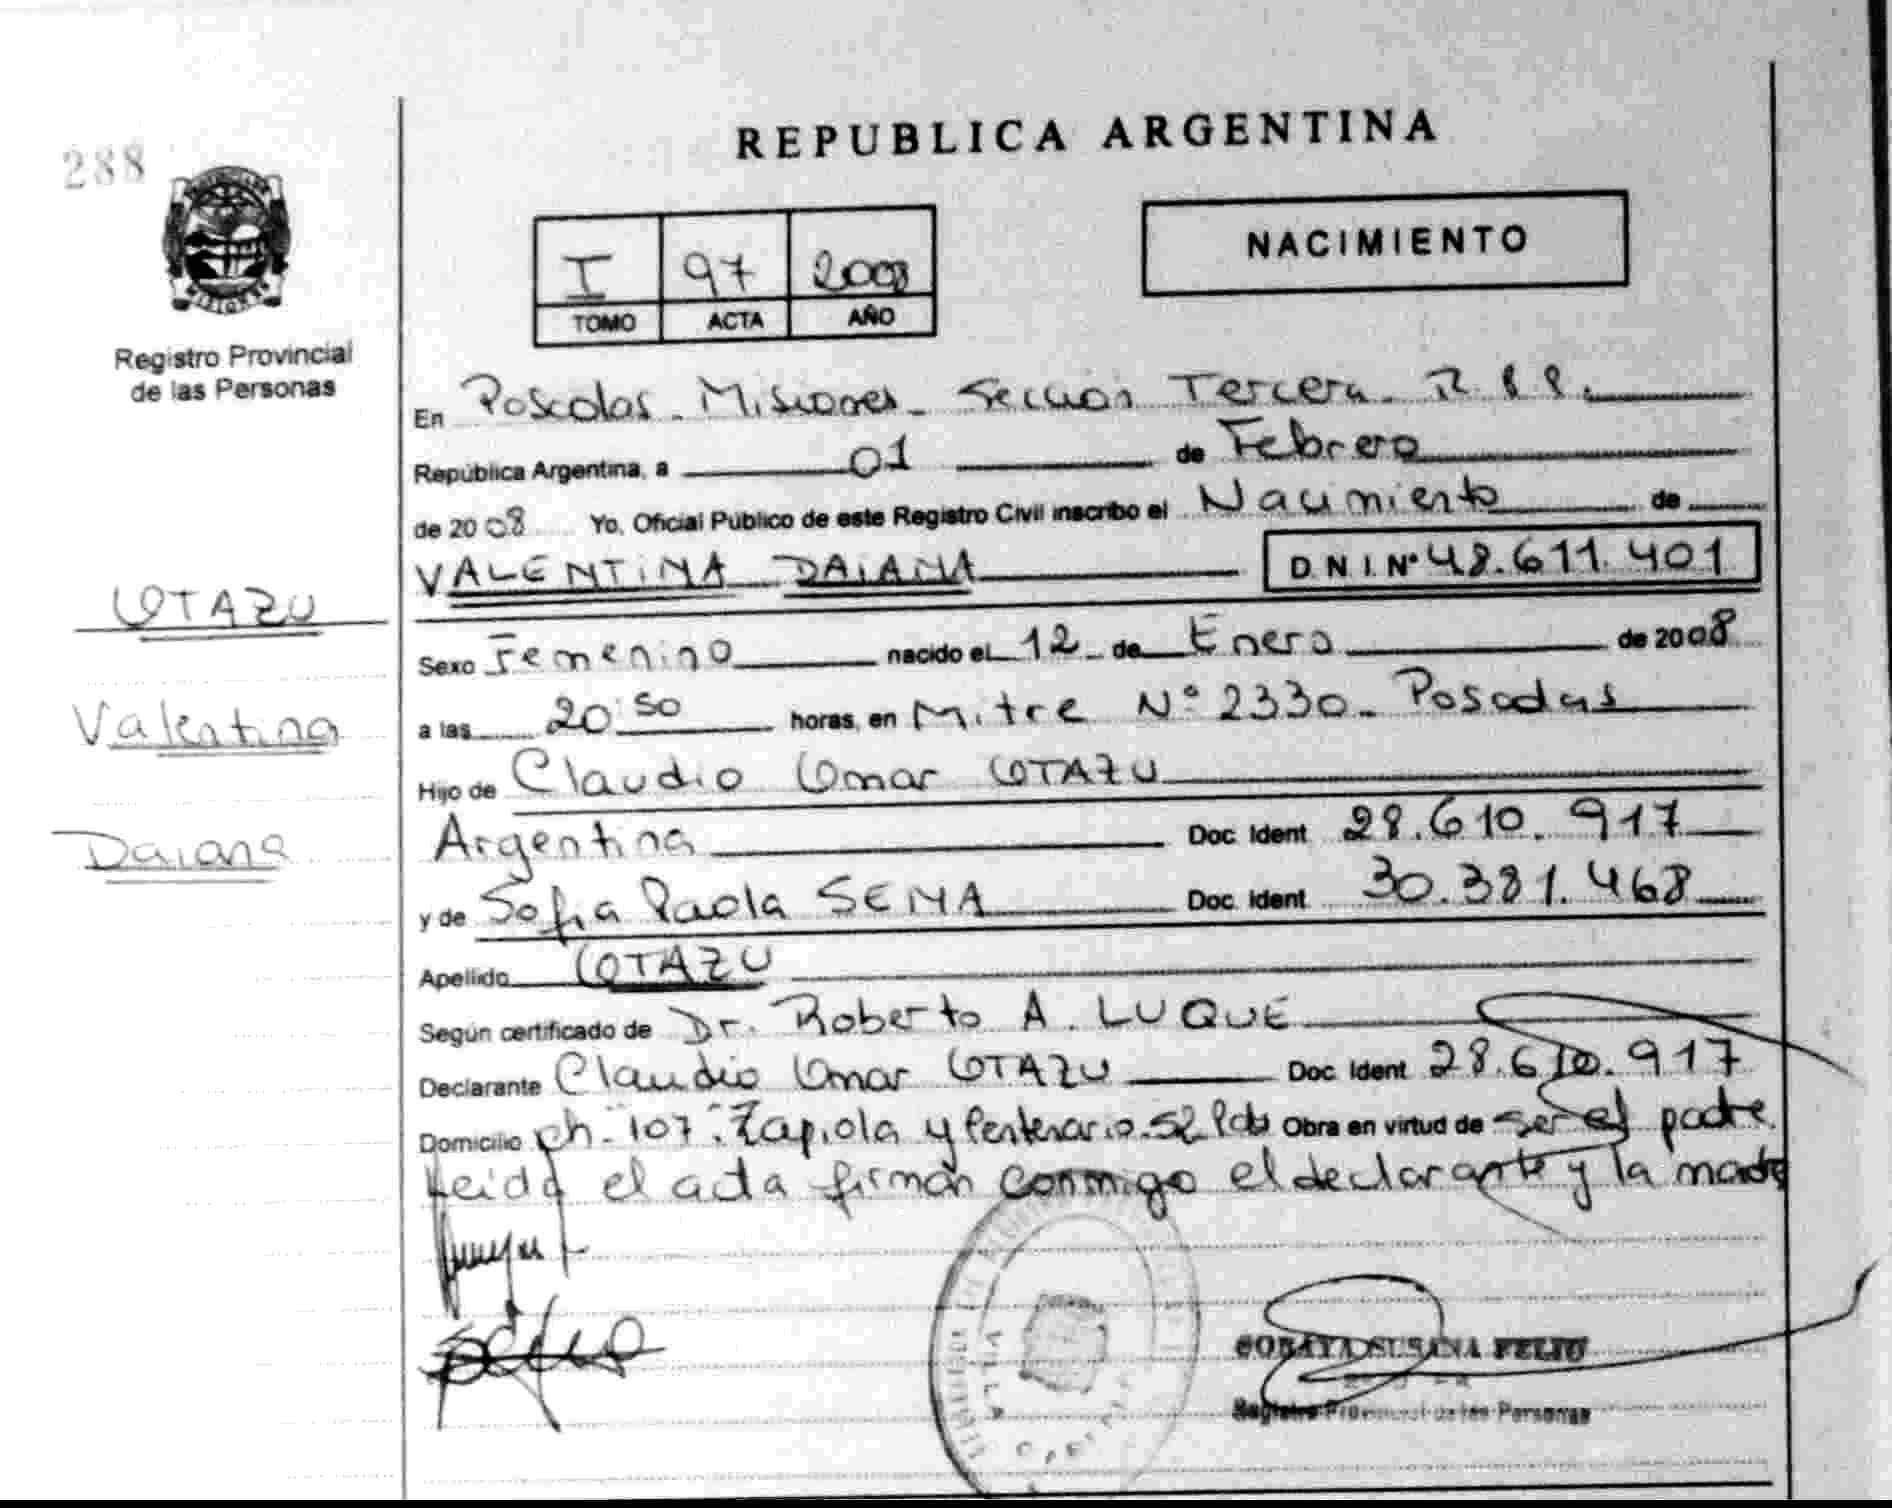 REPUBLICA ARGENTINA
288
NACIMIENTO
I 97 2008
TOMO ACTA AÑO
MISIONES
Registro Provincial
de las Personas
En Posadas - Misiones - Sección Tercera - R.P.P.
República Argentina, a 01 de Febrero
de 2008 Yo, Oficial Público de este Registro Civil inscribo el Nacimiento de
VALENTINA DAIANA D.N.I. Nº 48.611.401
OTAZU
Sexo Femenino nacido el 12 de Enero de 2008
Valentina
a las 20:50 horas, en Mitre Nº 2330 - Posadas
Hijo de Claudio Omar OTAZU
Daiana
Argentina Doc. Ident 28.610.917
y de Sofia Paola SENA Doc. Ident 30.381.468
Apellido OTAZU
Según certificado de Dr. Roberto A. LUQUE
Declarante Claudio Omar OTAZU Doc. Ident 28.610.917
Domicilio ch. 107 Zapiola y Centenario Obra en virtud de ser el padre
Leida el acta firman conmigo el declarante y la madre
VILLA
SORAYA SUSANA FELIU
Registro Provincial de las Personas